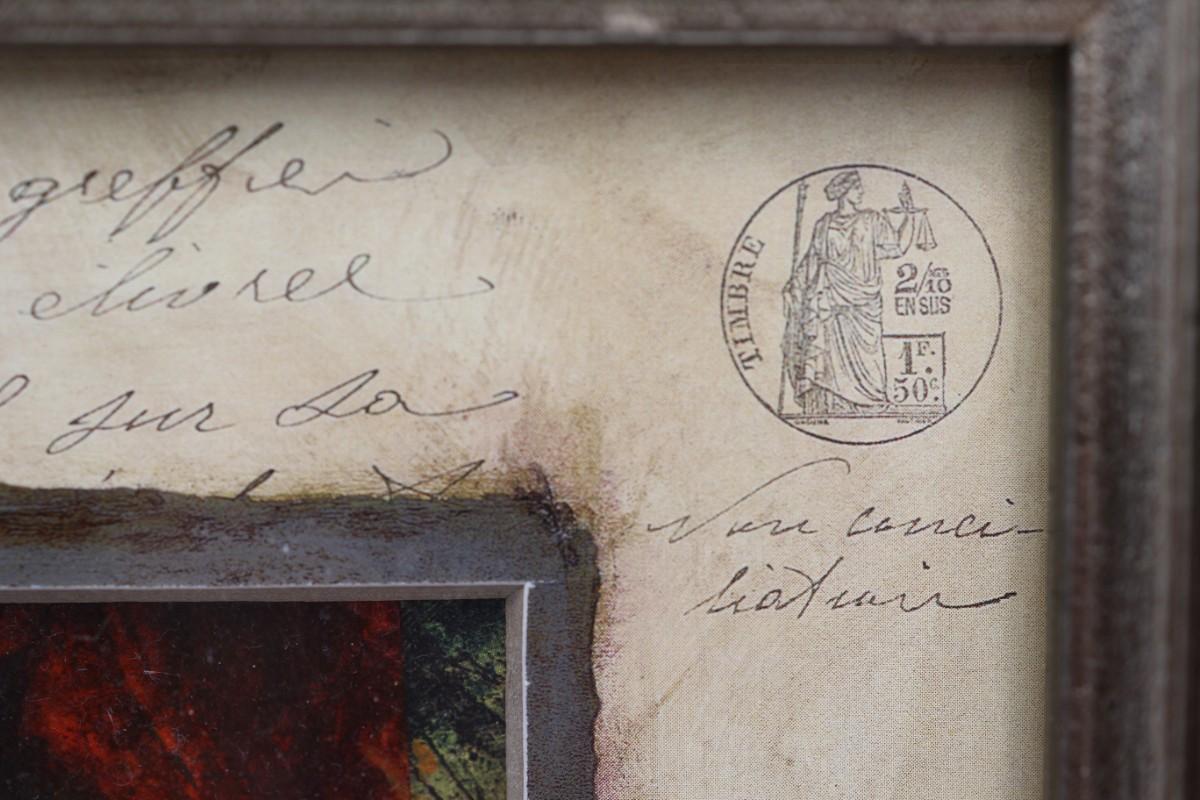 greffier
élivrer
sur sa
TIMBRE
2/10
EN SUS
1F.
50c.
Non conci-
liation